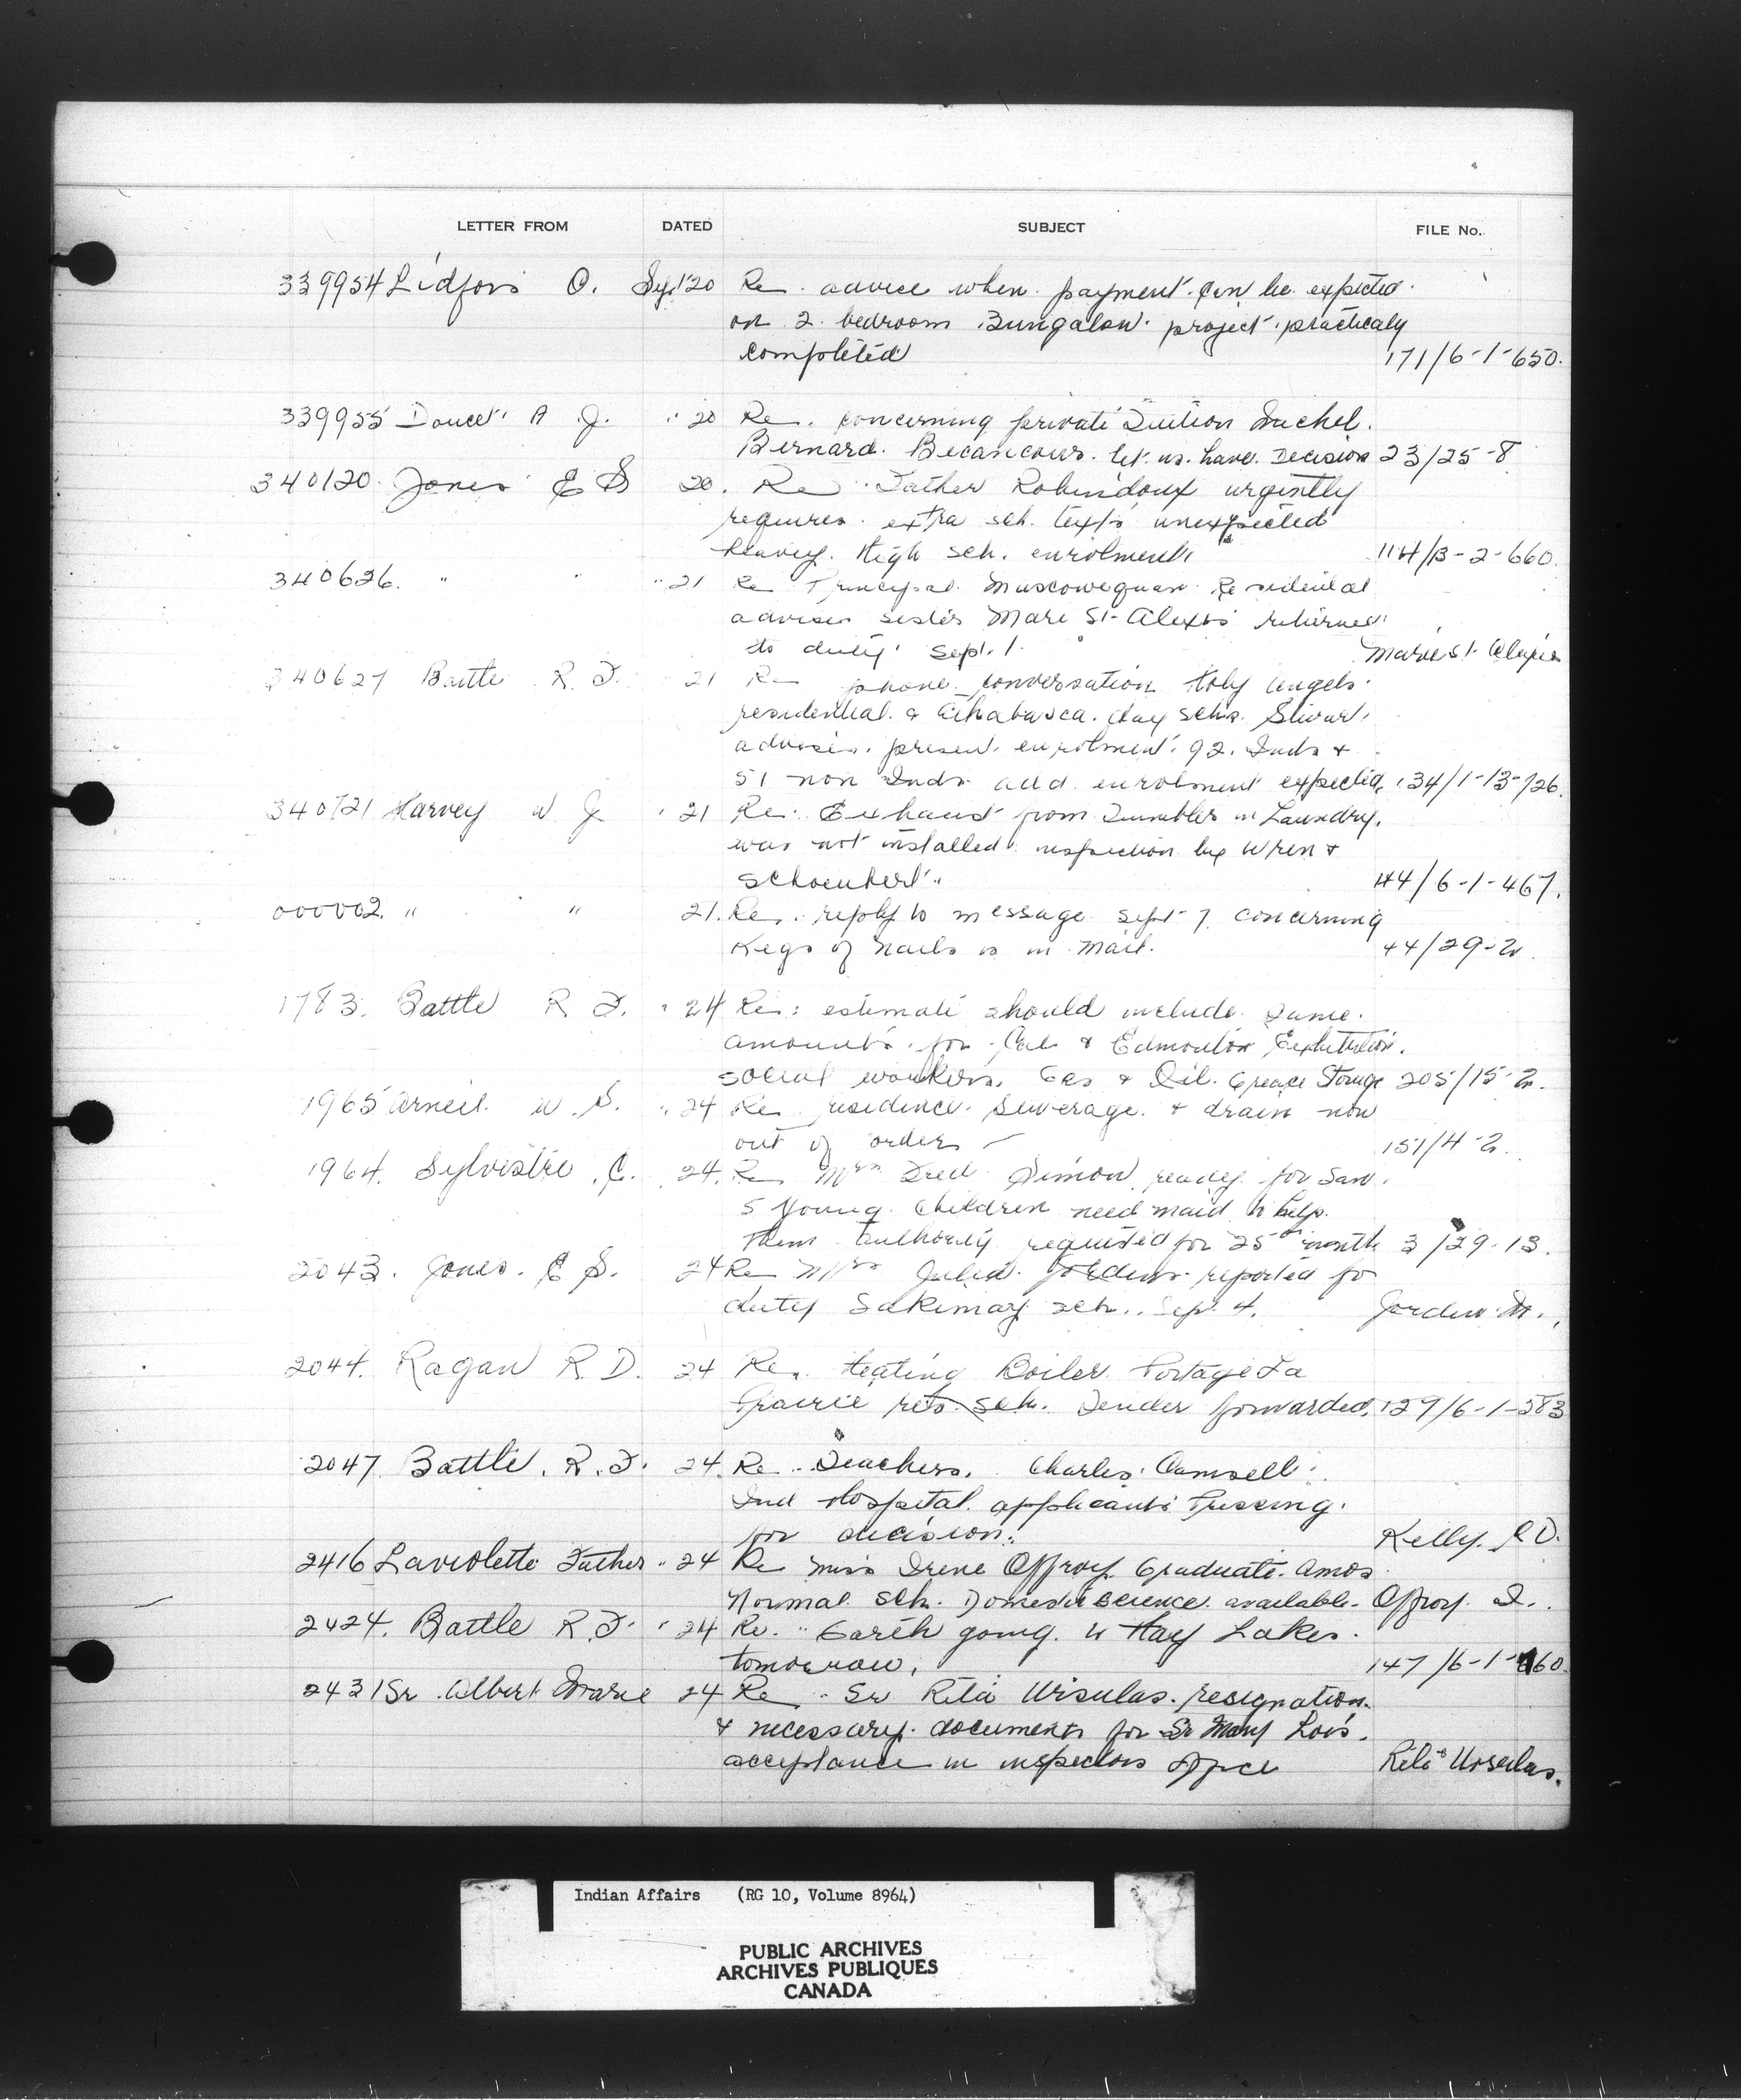 LETTER FROM DATED SUBJECT FILE No.
339954 Lidfors O. Sept 20 Re. advice when payment can be expected
on 2 bedroom Bungalow project practicaly
completed 171/6-1-650.
339955 Doucet A J. " 20 Re. concerning private Tuition Michel
Bernard. Becancour. let us have Decision 23/25-8
340120. Jones E S 20. Re Father Robindoux urgently
requires extra sch. texts unexpected
heavy High sch. enrolment 114/13-2-660.
340626. " " " 21 Re Principal Muscowequan Residential
advises sister Marie St-Alexis returned
to duty Sept. 1. Marie St. Alexis
340627 Battle R. F. 21 Re phone conversation Holy Angels
residential & Athabasca day schs.
advises present enrolment 92 Inds &
51 non Inds add enrolment expected, 134/1-13-126.
340721 Harvey W J " 21 Re. Exhaust from Tumbler in Laundry.
was not installed inspection by Wren &
Schoenhert 44/6-1-467.
000002. " " 21. Re. reply to message Sept 7. concerning
Kegs of nails is in mail. 44/29-2.
1783. Battle R F. " 24 Re: estimate should include same
amounts for Cal & Edmonton Exhibition.
social workers. Gas & Oil. Grease Storage 205/15-2.
1965 Arneil W. S. " 24 Re. residence. Sewerage & drain now
out of order 151/4-2.
1964. Sylvestre. C. 24. Re Mrs Fred Simon ready for San.
5 young children need maid to help
them authority requested for 25 00 month 3/29-13.
2043. Jones. E S. 24 Re Mrs Gordens reported for
duty Sakimay sch. Sep. 4. Gorden M.
2044. Ragan R. D. 24 Re. Heating Boiler Portage La
Prairie res. sch. Tender forwarded. 127/6-1-283
2047 Battle. R. F. 24. Re. Teachers. Charles Camsell
Ind Hospital applicants Pressing
for decision. Kelly. R D.
2416 Laviolette Father " 24 Re Miss Irene Offroy Graduate Amos
Normal Sch. Domestic Science available. Offroy I.
2424. Battle R. F. " 24 Re. going to Hay Lakes
tomorrow. 147/6-1-
2431 Sr. Albert Marie 24 Re Sr Rita Ursulas. resignation
& necessary documents for Sr Mary Lois.
acceptance in inspectors office Rita Ursulas.
Indian Affairs (RG 10, Volume 8964)
PUBLIC ARCHIVES
ARCHIVES PUBLIQUES
CANADA